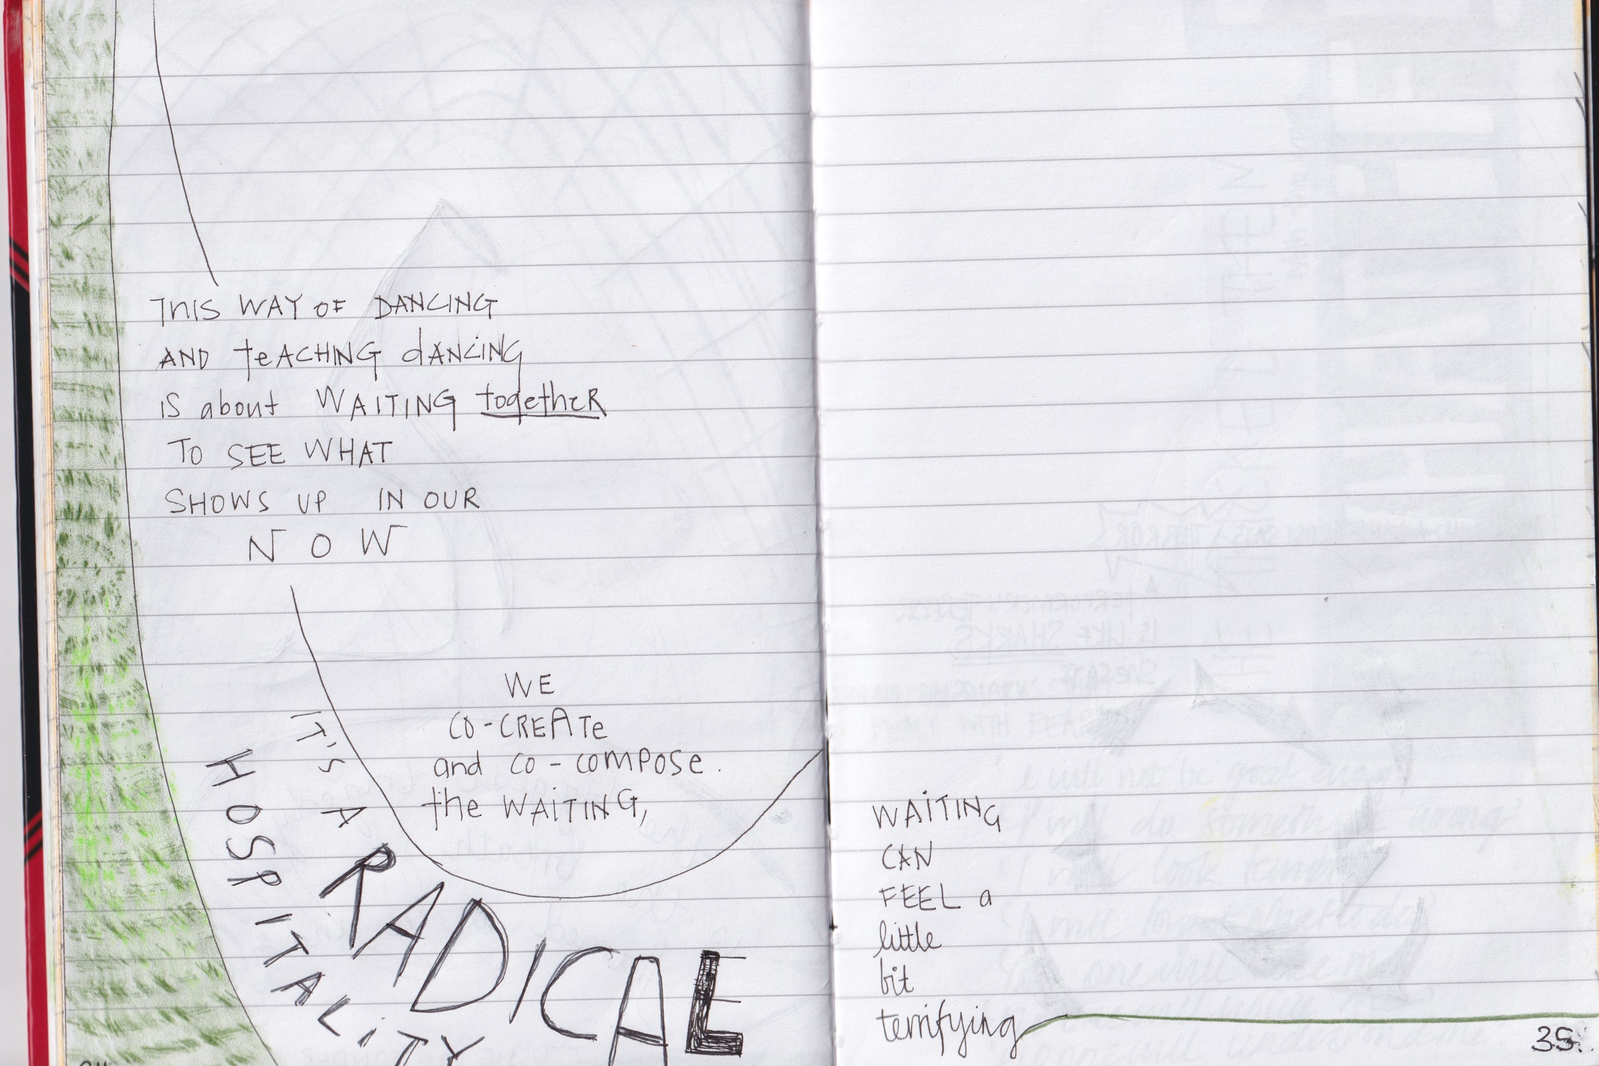 THIS WAY OF DANCING
AND teACHING dANCING
IS about WAITING together
TO SEE WHAT
SHOWS UP IN OUR
NOW
WE
CO-CREATe
and co-comPose.
the WAITING,
IT'S A
RADICAL
HOSPITALiTY
WAiTING
CAN
FEEL a
little
bit
terrifying
35.